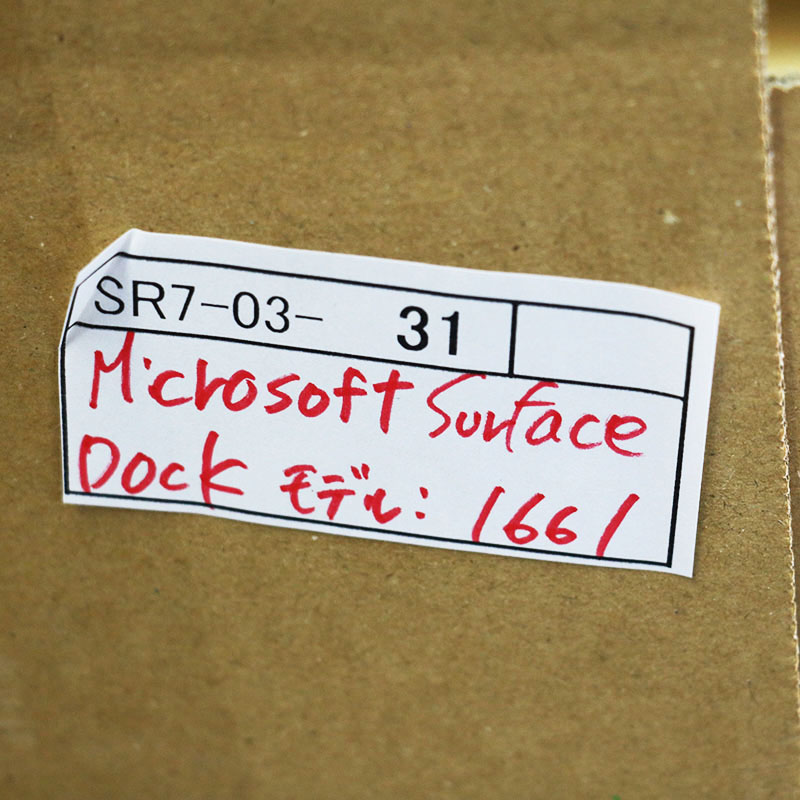 SR7-03- 31
Microsoft Surface
Dock モデル: 1661